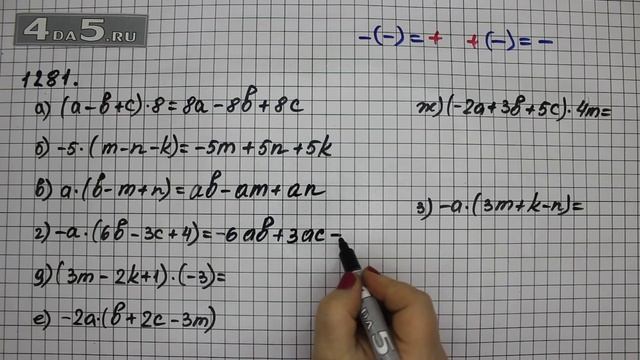 4DA5.RU
-(-)=+ +(-)=-
1281.
а) (a-b+c)·8=8a-8b+8c
б) -5·(m-n-k)=-5m+5n+5k
в) a·(b-m+n)=ab-am+an
г) -a·(6b-3c+4)=-6ab+3ac-
д) (3m-2k+1)·(-3)=
е) -2a·(b+2c-3m)
ж) (-2a+3b+5c)·4m=
з) -a·(3m+k-n)=
4DA5